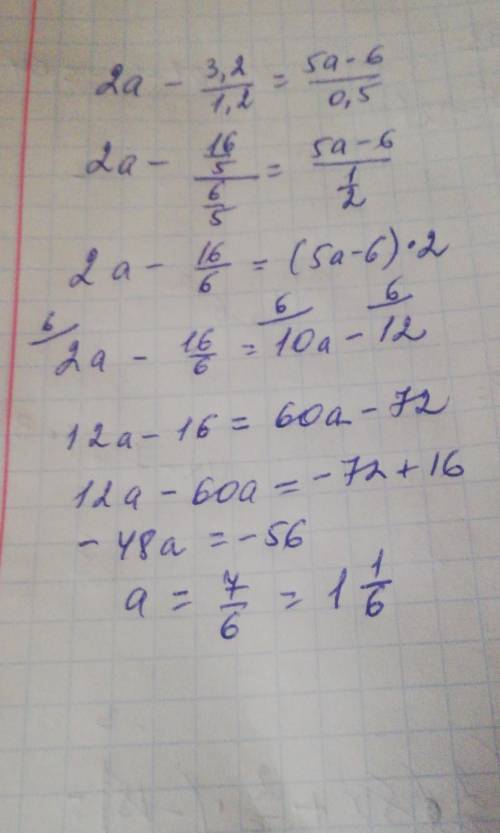 2a - 3,2/1,2 = 5a-6/0,5
2a - 16/5 / 6/5 = 5a-6 / 1/2
2a - 16/6 = (5a-6)·2
6/ 2a - 16/6 = 6/ 10a - 6/ 12
12a - 16 = 60a - 72
12a - 60a = -72 + 16
-48a = -56
a = 7/6 = 1 1/6